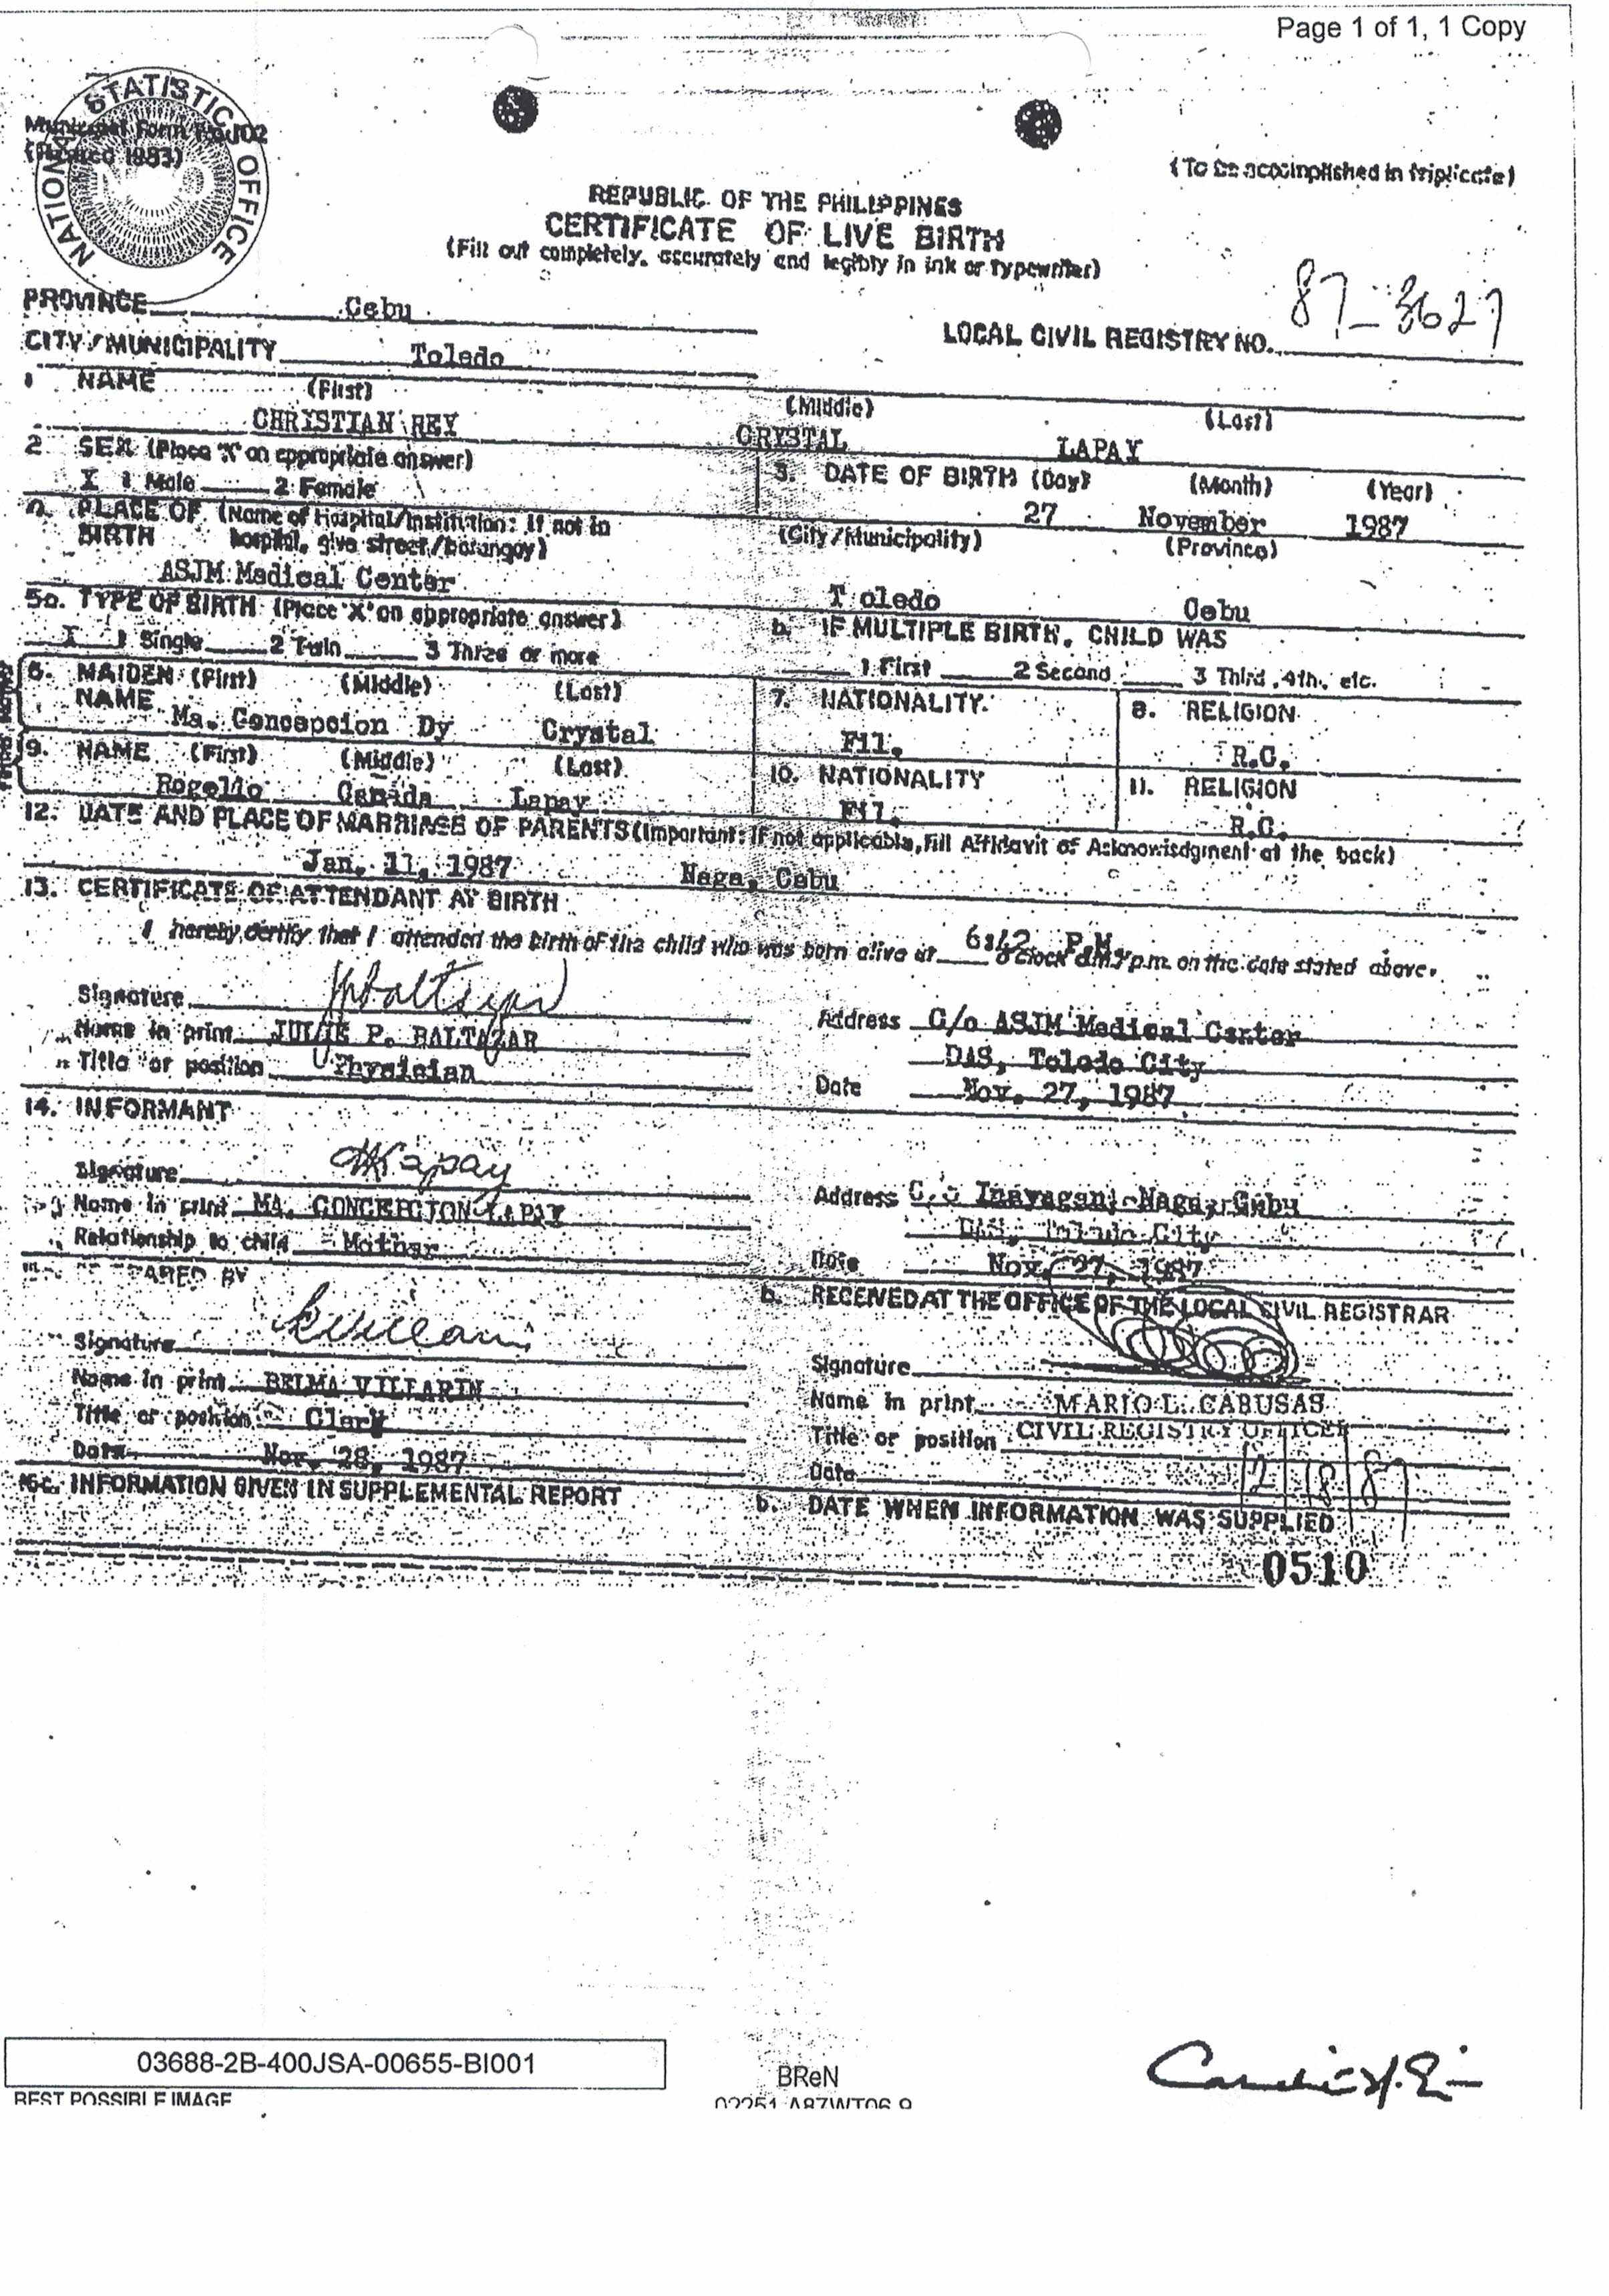 Page 1 of 1, 1 Copy
NATIONAL STATISTICS OFFICE
Municipal Form No. 102
(Revised 1983)
(To be accomplished in triplicate)
REPUBLIC OF THE PHILIPPINES
CERTIFICATE OF LIVE BIRTH
(Fill out completely, accurately and legibly in ink or typewriter)
PROVINCE Cebu
LOCAL CIVIL REGISTRY NO. 87-3627
CITY/MUNICIPALITY Toledo
1 NAME (First) (Middle) (Last)
CHRISTIAN REY CRYSTAL LAPAY
2 SEX (Place 'X' on appropriate answer)
X 1 Male 2 Female
3. DATE OF BIRTH (Day) (Month) (Year)
27 November 1987
PLACE OF BIRTH (Name of Hospital/Institution: If not in hospital, give street/barangay)
(City/Municipality) (Province)
ASJM Medical Center
Toledo Cebu
5a. TYPE OF BIRTH (Place 'X' on appropriate answer)
X 1 Single 2 Twin 3 Three or more
b. IF MULTIPLE BIRTH, CHILD WAS
1 First 2 Second 3 Third, 4th, etc.
6. MAIDEN NAME (First) (Middle) (Last)
Ma. Concepcion Dy Crystal
7. NATIONALITY
Fil.
8. RELIGION
R.C.
9. NAME (First) (Middle) (Last)
Rogelio Lapay
10. NATIONALITY
Fil.
11. RELIGION
R.C.
12. DATE AND PLACE OF MARRIAGE OF PARENTS (Important: If not applicable, fill Affidavit of Acknowledgment at the back)
Jan. 11, 1987 Naga, Cebu
13. CERTIFICATE OF ATTENDANT AT BIRTH
I hereby certify that I attended the birth of the child who was born alive at 6:42 P.M. o'clock a.m./p.m. on the date stated above.
Signature
Name in print JULIE P. BALTAZAR
Title or position Physician
Address C/o ASJM Medical Center
DAS, Toledo City
Date Nov. 27, 1987
14. INFORMANT
Signature
Name in print MA. CONCEPCION LAPAY
Relationship to child Mother
Address Inayagan, Naga, Cebu
Toledo City
Date Nov. 27, 1987
PREPARED BY
Signature
Name in print BELMA VILLARIN
Title or position Clerk
Date Nov. 28, 1987
b. RECEIVED AT THE OFFICE OF THE LOCAL CIVIL REGISTRAR
Signature
Name in print MARIO L. CABUSAS
Title or position CIVIL REGISTRY OFFICER
Date
16c. INFORMATION GIVEN IN SUPPLEMENTAL REPORT
b. DATE WHEN INFORMATION WAS SUPPLIED
0510
03688-2B-400JSA-00655-BI001
BEST POSSIBLE IMAGE
BReN